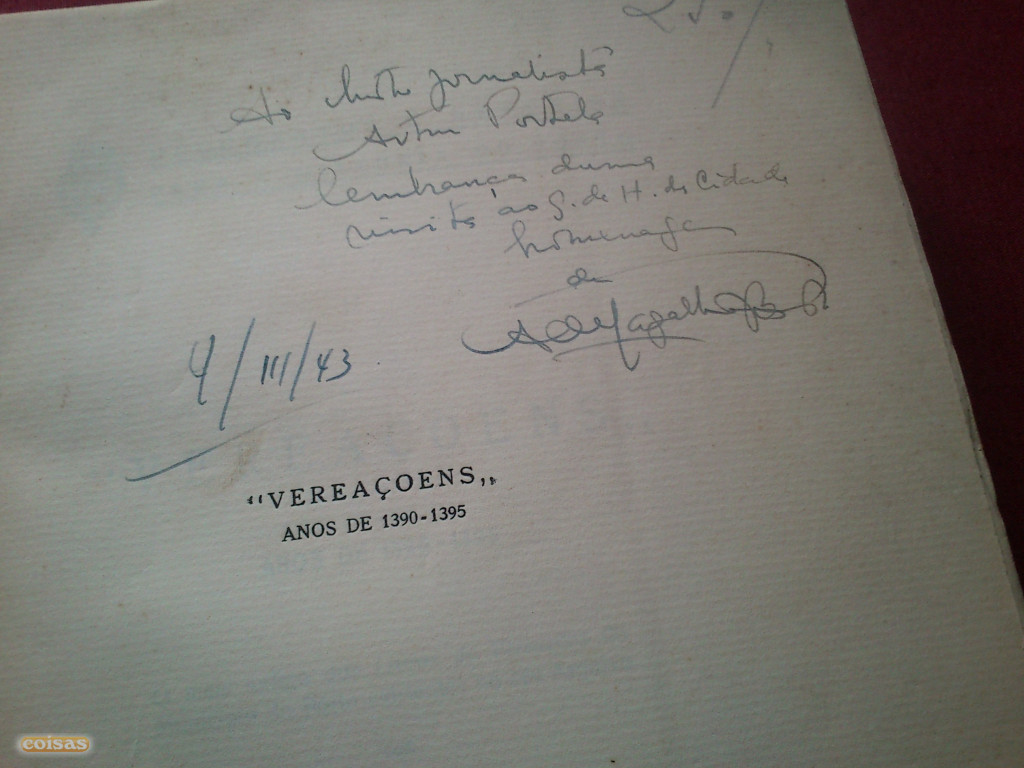 Ao ilustre jornalista
Artur Portela
lembrança duma
visita ao G. de H. da Cidade
homenagem
de
A. de Magalhães
4/III/43
“VEREAÇOENS„
ANOS DE 1390-1395
coisas